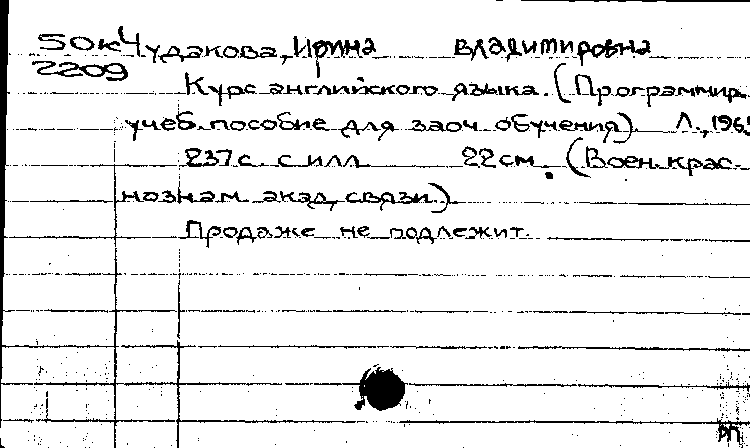 50к Чудакова, Ирина Владимировна
2209
Курс английского языка. (Программир.
учеб. пособие для заоч. обучения). Л., 196
237 с. с илл. 22 см. (Воен. крас-
нознам. акад. связи.).
Продаже не подлежит.